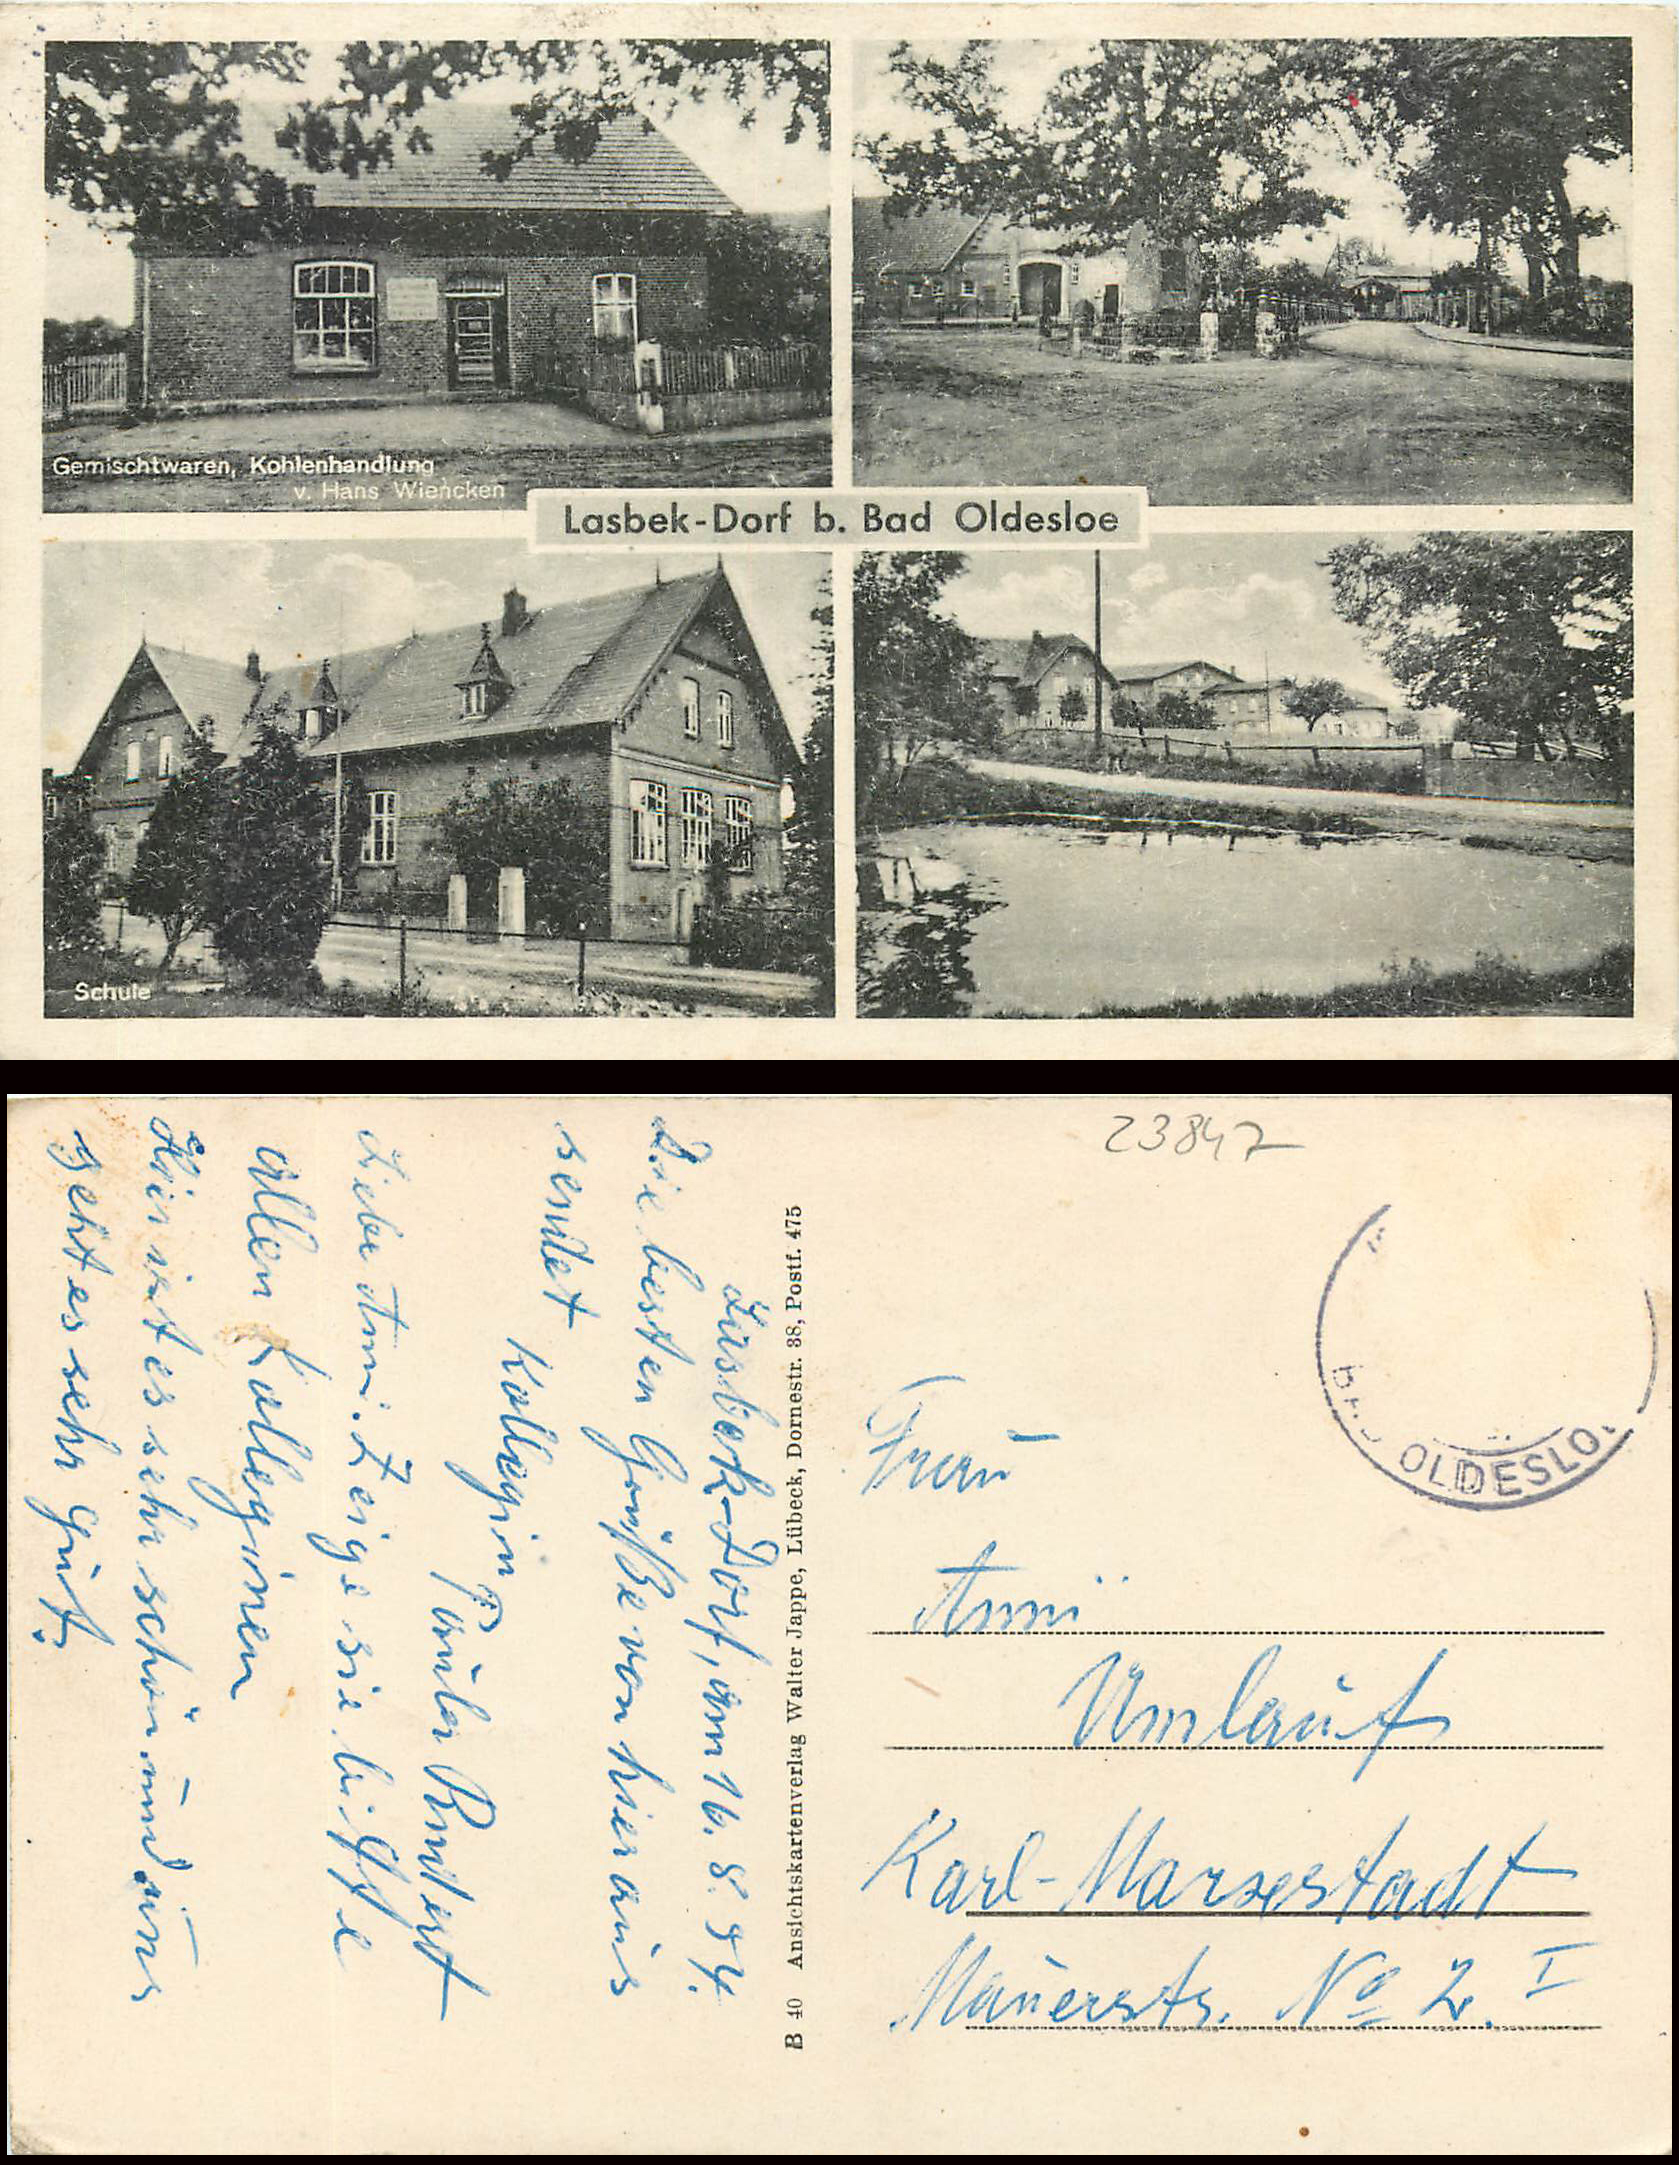 Gemischtwaren, Kohlenhandlung
v. Hans Wiencken
Lasbek-Dorf b. Bad Oldesloe
Schule
23847
BAD OLDESLO
Lasbek-Dorf, am 16. 8. 54.
Die besten Grüße von hier aus
sendet
Kollegin
Paula
Liebe Anni. Zeige sie bitte
allen Kolleginen
Hier ist es sehr schön und uns
geht es sehr gut.
B 40 Ansichtskartenverlag Walter Jappe, Lübeck, Dornestr. 38, Postf. 475
Frau
Anni
Umlauf
Karl-Marxestadt
Mauerstr. No 2. I